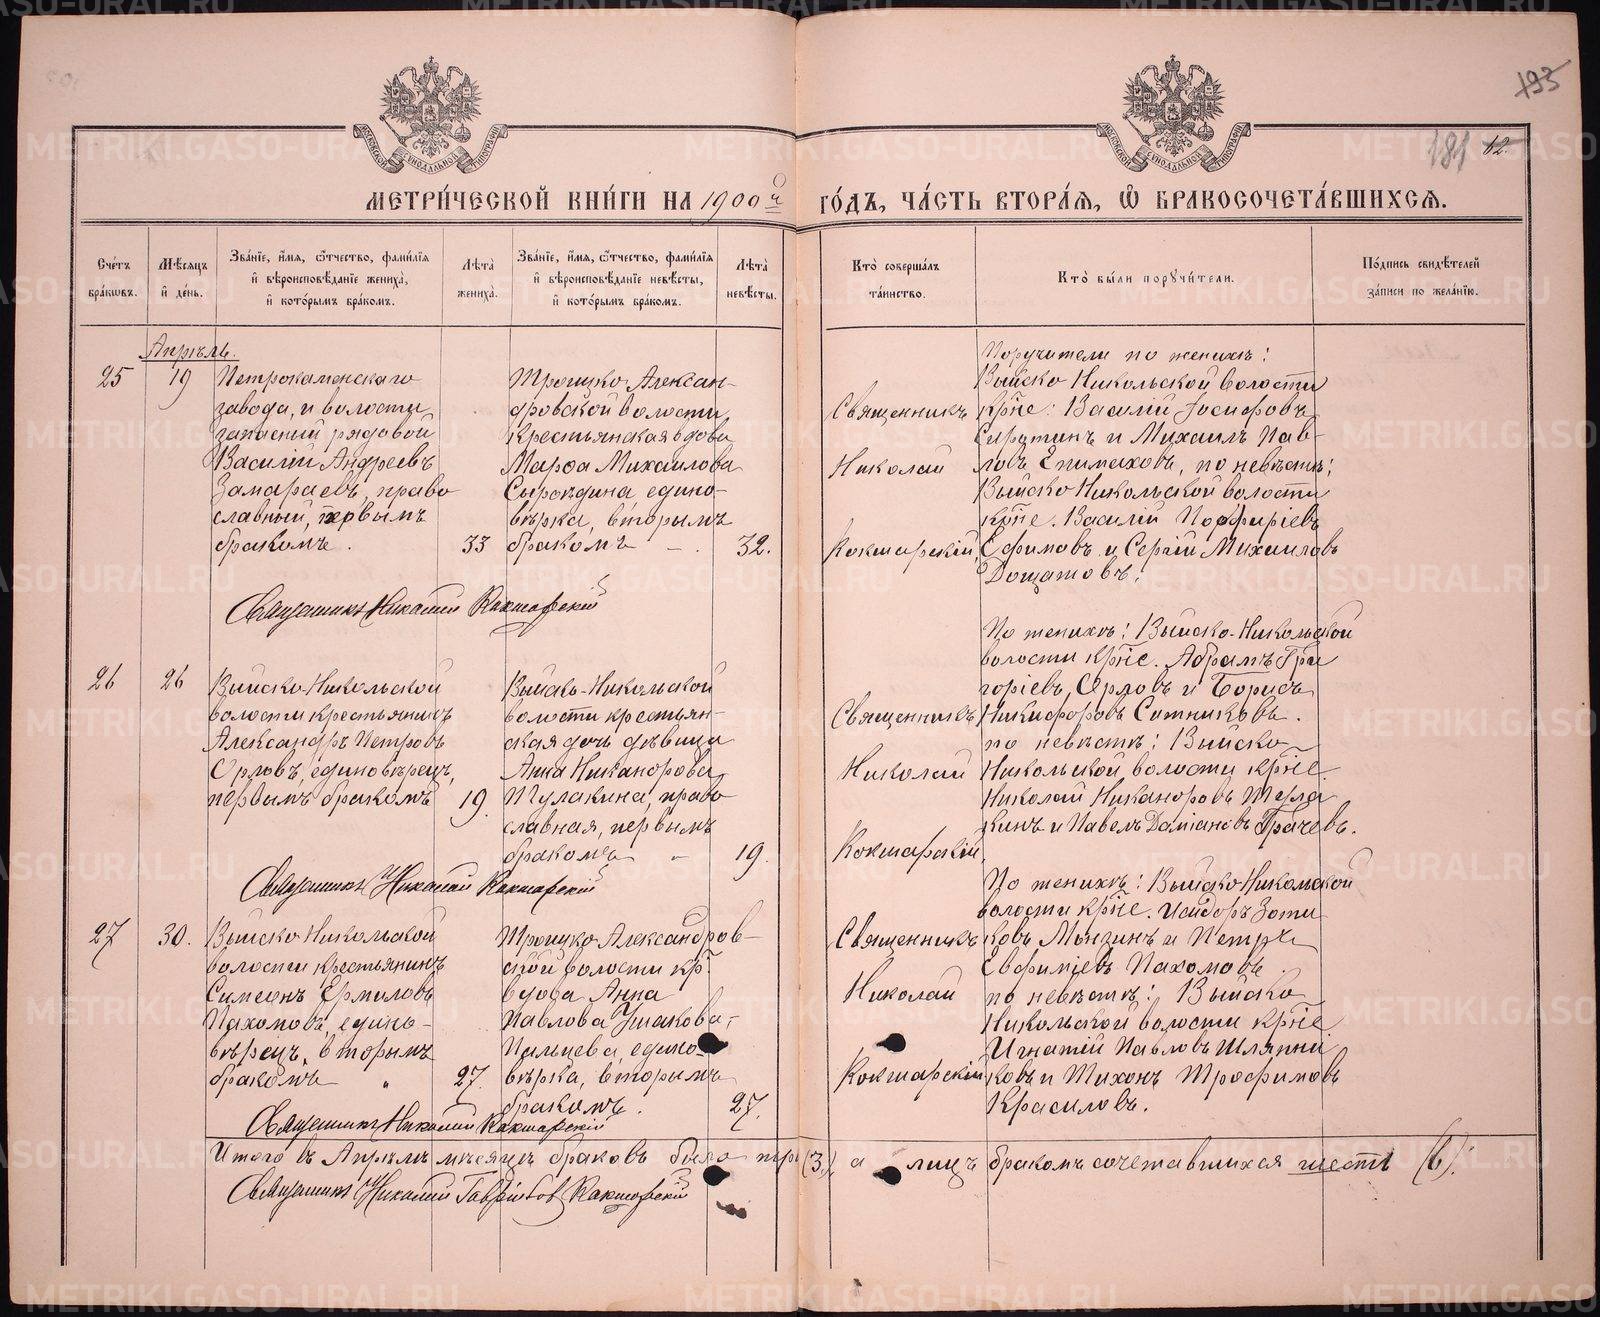 193
181 12.
МЕТРИ́ЧЕСКОЙ КНИ́ГИ НА 1900й ГО́ДЪ, ЧА́СТЬ ВТОРА́Я, Ѽ БРАКОСОЧЕТА́ВШИХСЯ.
Сче́тъ бра́кѡвъ.
Мѣ́сяцъ и҆ де́нь.
Зва́нїе, и҆́мѧ, ѻ҆́тчество, фами́лїѧ и҆ вѣроисповѣ́данїе жениха̀, и҆ кото́рымъ бра́комъ.
Лѣ́та̀ жениха̀.
Зва́нїе, и҆́мѧ, ѻ҆́тчество, фами́лїѧ и҆ вѣроисповѣ́данїе невѣ́сты, и҆ кото́рымъ бра́комъ.
Лѣ́та̀ невѣ́сты.
Кто̀ соверша́лъ та́инство.
Кто̀ бы́ли порꙋчи́тели.
По́дпись свидѣ́телей за́писи по жела́нїю.
Апрѣль.
25
19
Петрокаменскаго
завода, и волости,
запасный рядовой
Василій Андреевъ
Замараевъ, право
славный, первымъ
бракомъ.
33
Троицко-Алексан-
дровской волости,
крестьянская вдова
Марѳа Михаилова
Сыроѣдина, едино-
вѣрка, вторымъ
бракомъ - .
32.
Священникъ
Николай
Кокшарскій,
Поручители по женихѣ:
Выйско Никольской волости
кр̃не: Василій Іосифовъ
Сиротинъ и Михаилъ Пав-
ловъ Епимаховъ, по невѣстѣ:
Выйско Никольской волости
кр̃не. Василій Порфиріевъ
Ефимовъ и Сергій Михаиловъ
Дощатовъ.
Священникъ Николай Кокшарскій
26
26
Выйско-Никольской
волости крестьянинъ
Александръ Петровъ
Орловъ, единовѣрецъ,
первымъ бракомъ
19.
Выйско-Никольской
волости крестьян-
ская дочь дѣвица
Анна Никанорова
Тулакина, право
славная, первымъ
бракомъ "
19.
Священникъ
Николай
Кокшарскій,
По женихѣ: Выйско-Никольской
волости кр̃не. Абрамъ Гри
горіевъ, Орловъ и Борисъ
Никифоровъ Сотниковъ.
по невѣстѣ: Выйско
Никольской волости кр̃не.
Николай Никаноровъ Тула
кинъ и Павелъ Даміановъ Грачевъ.
Священникъ Николай Кокшарскій
27
30.
Выйско Никольской
волости крестьянинъ
Симеонъ Ермиловъ
Пахомовъ, едино-
вѣрецъ, вторымъ
бракомъ "
27.
Троицко Александров-
ской волости кр.
вдова Анна
Павлова Ушакова,
Пальцева, едино-
вѣрка, вторымъ
бракомъ.
27.
Священникъ
Николай
Кокшарскій
По женихѣ: Выйско Никольской
волости кр̃не. Исидоръ Зоти
ковъ Мензинъ и Петръ
Евфиміевъ Пахомовъ.
по невѣстѣ: Выйско
Никольской волости кр̃не.
Игнатій Павловъ Шляпни
ковъ и Тихонъ Трофимовъ
Красиловъ.
Священникъ Николай Кокшарскій
Итого въ Апрѣлѣ мѣсяцѣ браковъ было три (3), а лицъ бракомъ сочетавшихся шесть (6).
Священникъ Николай Гаврііловъ Кокшарскій